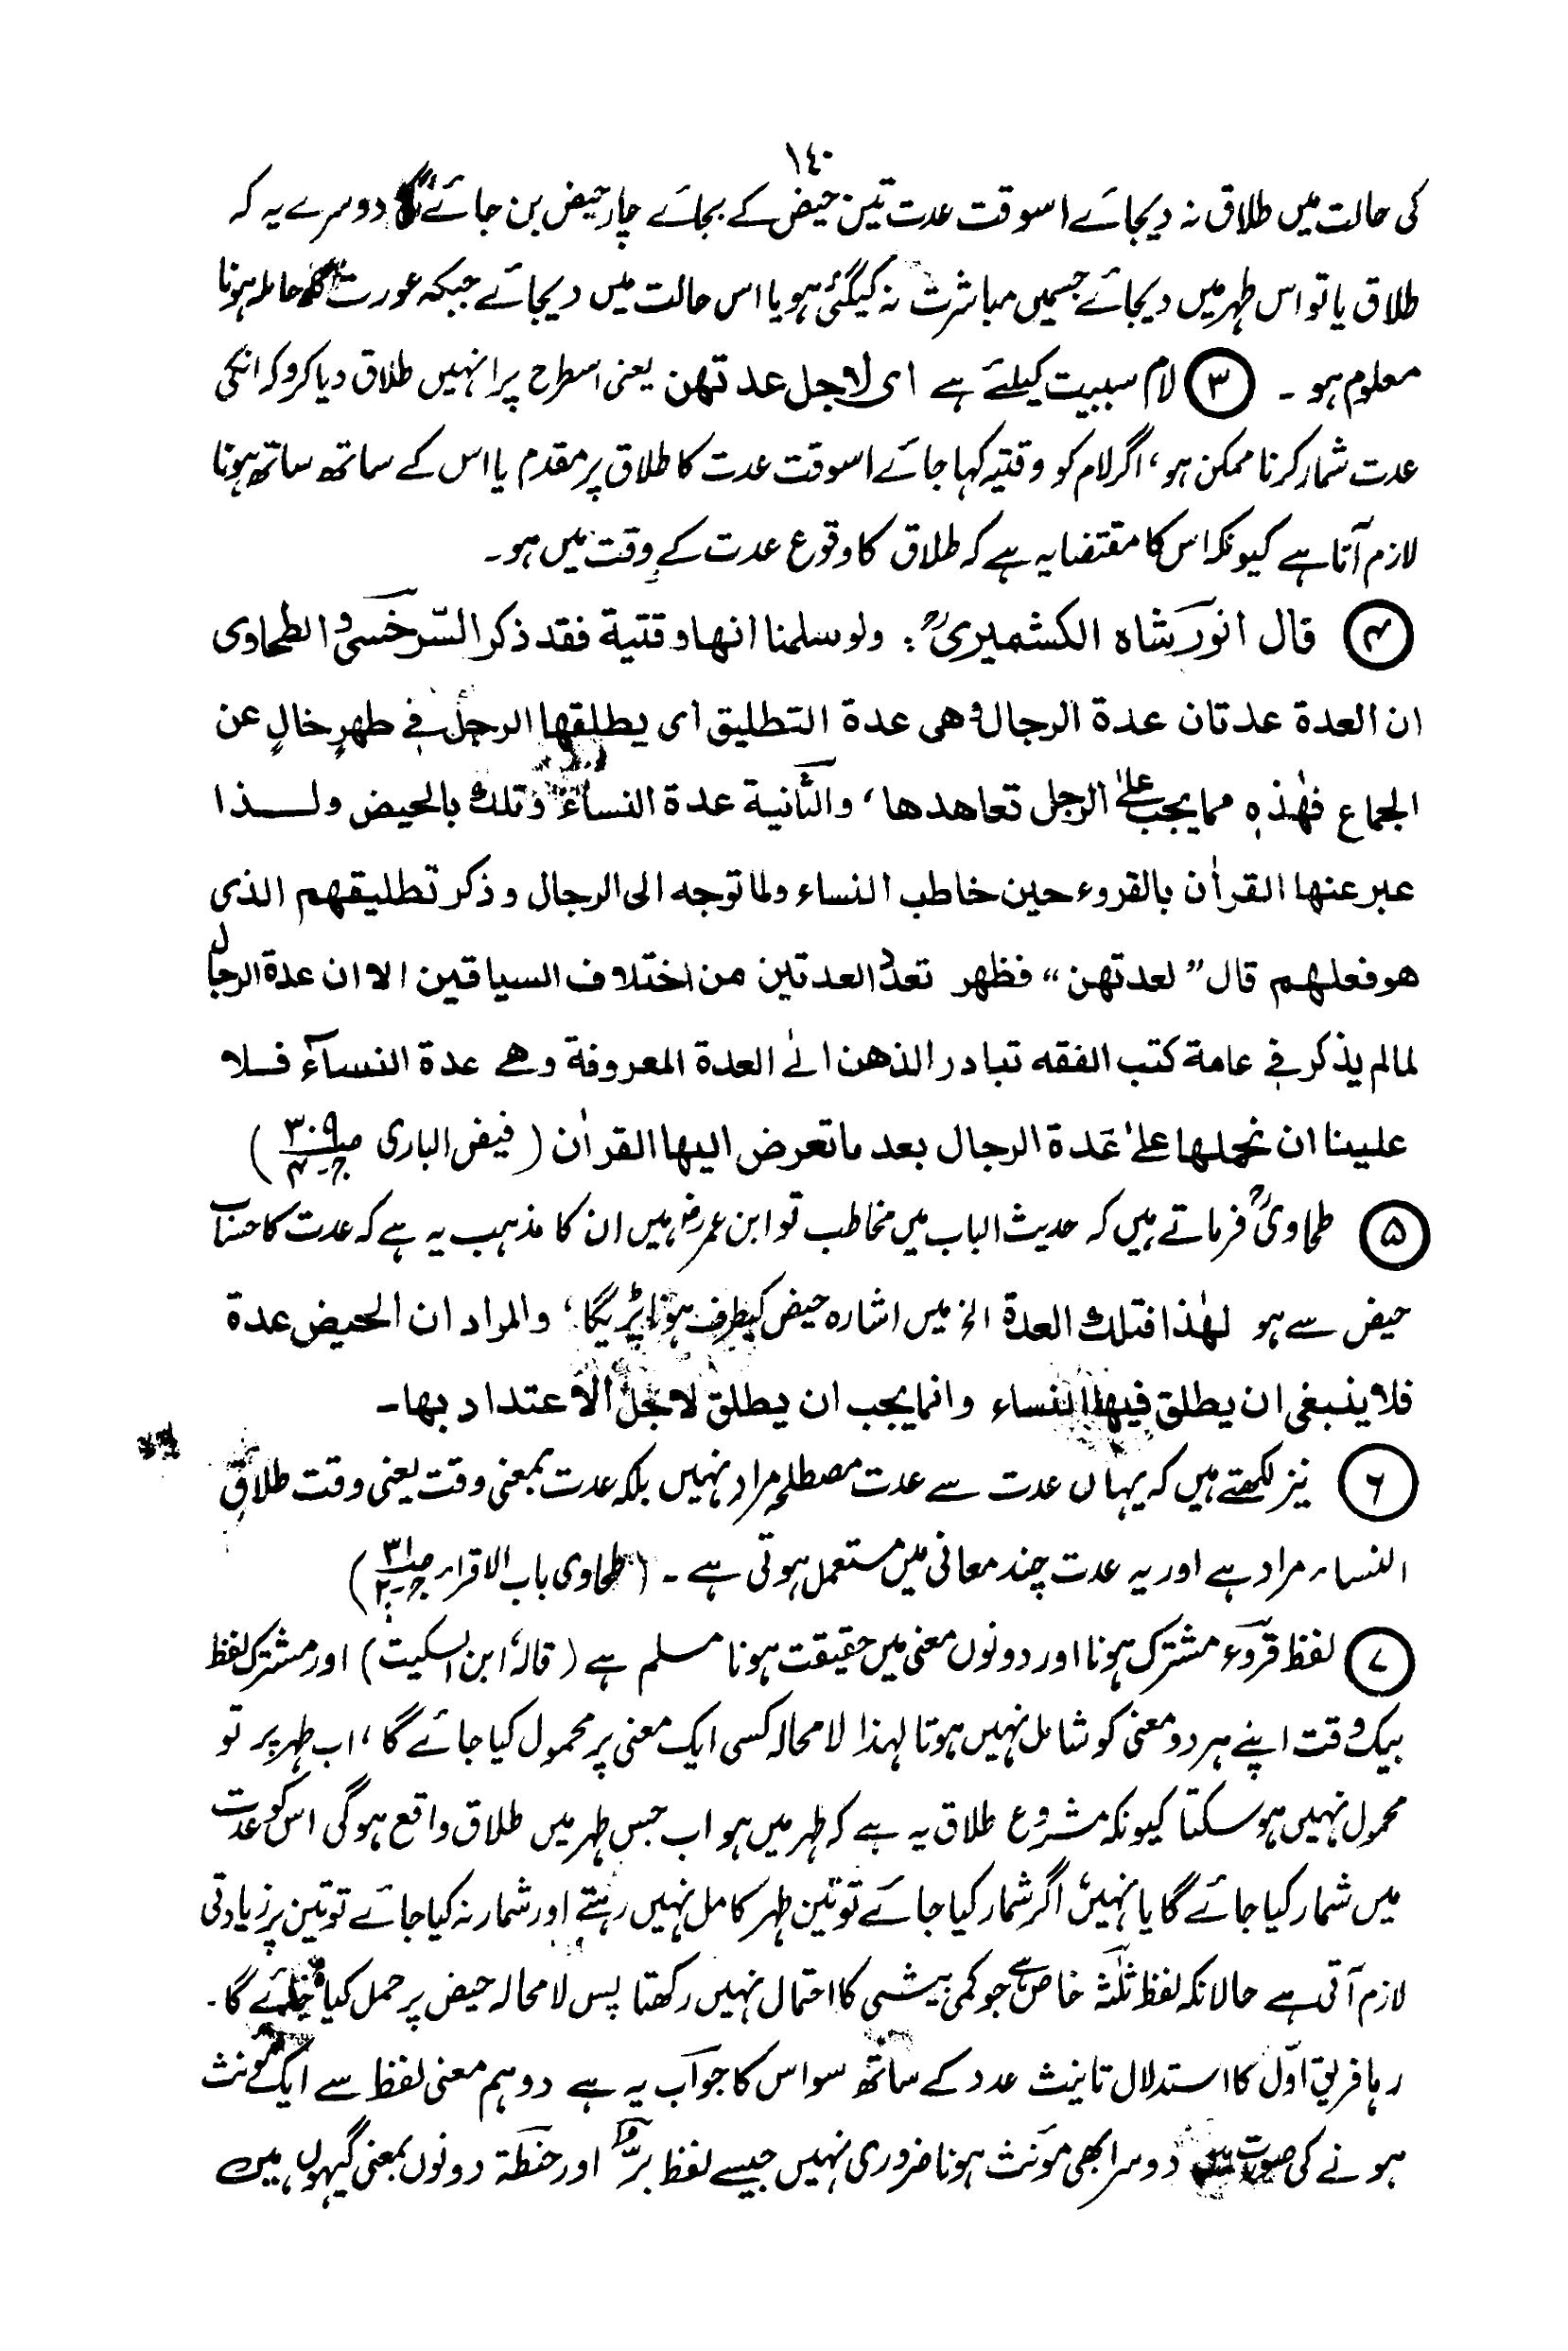 ١٤٠
کی حالت میں طلاق نہ دیجائے اسوقت عدت تین حیض کے بجائے چار حیض بن جائے گی دوسرے یہ کہ
طلاق یا تو اس طہر میں دیجائے جسمیں مباشرت نہ کیگئی ہو یا اس حالت میں دیجائے جبکہ عورت کا حاملہ ہونا
معلوم ہو ۔ ③ لام سببیت کیلئے ہے ای لاجل عدتهن یعنی اسطرح پر انہیں طلاق دیا کرو کہ انکی
عدت شمار کرنا ممکن ہو، اگر لام کو وقتیہ کہا جائے اسوقت عدت کا طلاق پر مقدم یا اس کے ساتھ ساتھ ہونا
لازم آتا ہے کیونکہ اس کا مقتضا یہ ہے کہ طلاق کا وقوع عدت کے وقت میں ہو۔
④ قال انور شاہ الکشمیریؒ : ولو سلمنا انها وقتية فقد ذكر السّرخسیؒ و الطحاوی
ان العدة عدتان عدة الرجال وهی عدة التطليق ای يطلقها الرجل فی طهرٍ خالٍ عن
الجماع فهٰذه مما يجب علی الرجل تعاهدها، والثّانية عدة النساء وتلك بالحيض ولــذا
عبر عنها القراٰن بالقروء حين خاطب النساء ولما توجه الى الرجال وذكر تطليقهم الذی
هو فعلهم قال ”لعدتهن“ فظهر تعدد العدتين من اختلاف السياقين الا ان عدة الرجال
لما لم يذكر فی عامة كتب الفقه تبادر الذهن الیٰ العدة المعروفة وهی عدة النساء فــلا
علينا ان نحملها علیٰ عدة الرجال بعد ما تعرض اليها القراٰن (فیض الباری صـ٣٠٩ جـ۴)
⑤ طحاویؒ فرماتے ہیں کہ حدیث الباب میں مخاطب تو ابن عمرؓ ہیں ان کا مذہب یہ ہے کہ عدت کا حساب
حیض سے ہو لہٰذا فتلك العدة الخ میں اشارہ حیض کیطرف ہونا پڑیگا، والمراد ان الحيض عدة
فلا ينبغی ان يطلق فيها النساء وانما يجب ان يطلق لاجل الاعتداد بها۔
⑥ نیز لکھتے ہیں کہ یہاں عدت سے عدت مصطلحہ مراد نہیں بلکہ عدت بمعنی وقت یعنی وقت طلاق
النساء مراد ہے اور یہ عدت چند معانی میں مستعمل ہوتی ہے ۔ (طحاوی باب الاقراء صـ٣١ جـ٢)
⑦ لفظ قروء مشترک ہونا اور دونوں معنی میں حقیقت ہونا مسلم ہے (قالہ ابن السکیت) اور مشترک لفظ
بیک وقت اپنے ہر دو معنی کو شامل نہیں ہوتا لہذا لا محالہ کسی ایک معنی پر محمول کیا جائے گا، اب طہر پر تو
محمول نہیں ہو سکتا کیونکہ مشروع طلاق یہ ہے کہ طہر میں ہو اب جس طہر میں طلاق واقع ہوگی اس کو عدت
میں شمار کیا جائے گا یا نہیں اگر شمار کیا جائے تو تین طہر کامل نہیں رہتے اور شمار نہ کیا جائے تو تین پر زیادتی
لازم آتی ہے حالانکہ لفظ ثلٰثہ خاص ہے جو کمی بیشی کا احتمال نہیں رکھتا پس لا محالہ حیض پر حمل کیا جائے گا۔
رہا فریق اوّل کا استدلال تانیث عدد کے ساتھ سو اس کا جواب یہ ہے دو ہم معنی لفظ سے ایک مؤنث
ہونے کی صورت میں دوسرا بھی مؤنث ہونا ضروری نہیں جیسے لفظ بُرّ اور حنطۃ دونوں بمعنی گیہوں ہیں